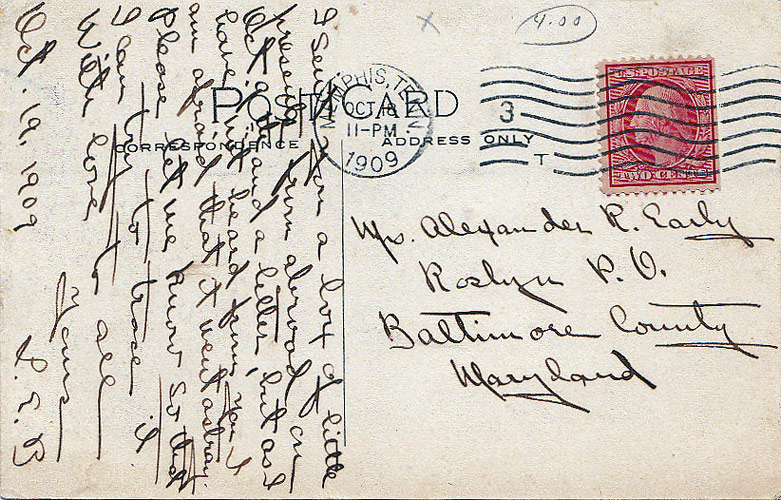 4.00
POST CARD
CORRESPONDENCE
ADDRESS ONLY
MEMPHIS, TENN.
OCT 18
11-PM
1909
3
T
U.S. POSTAGE
TWO CENTS
Mrs. Alexander R. Early
Roslyn P. O.
Baltimore County
Maryland
I sent you a box of little
presents from abroad on
Oct and a letter, but as I
have not heard from you I
am afraid that it went astray.
Please let me know so that
I can try to trace it
With love to all
Yours
Oct. 19, 1909